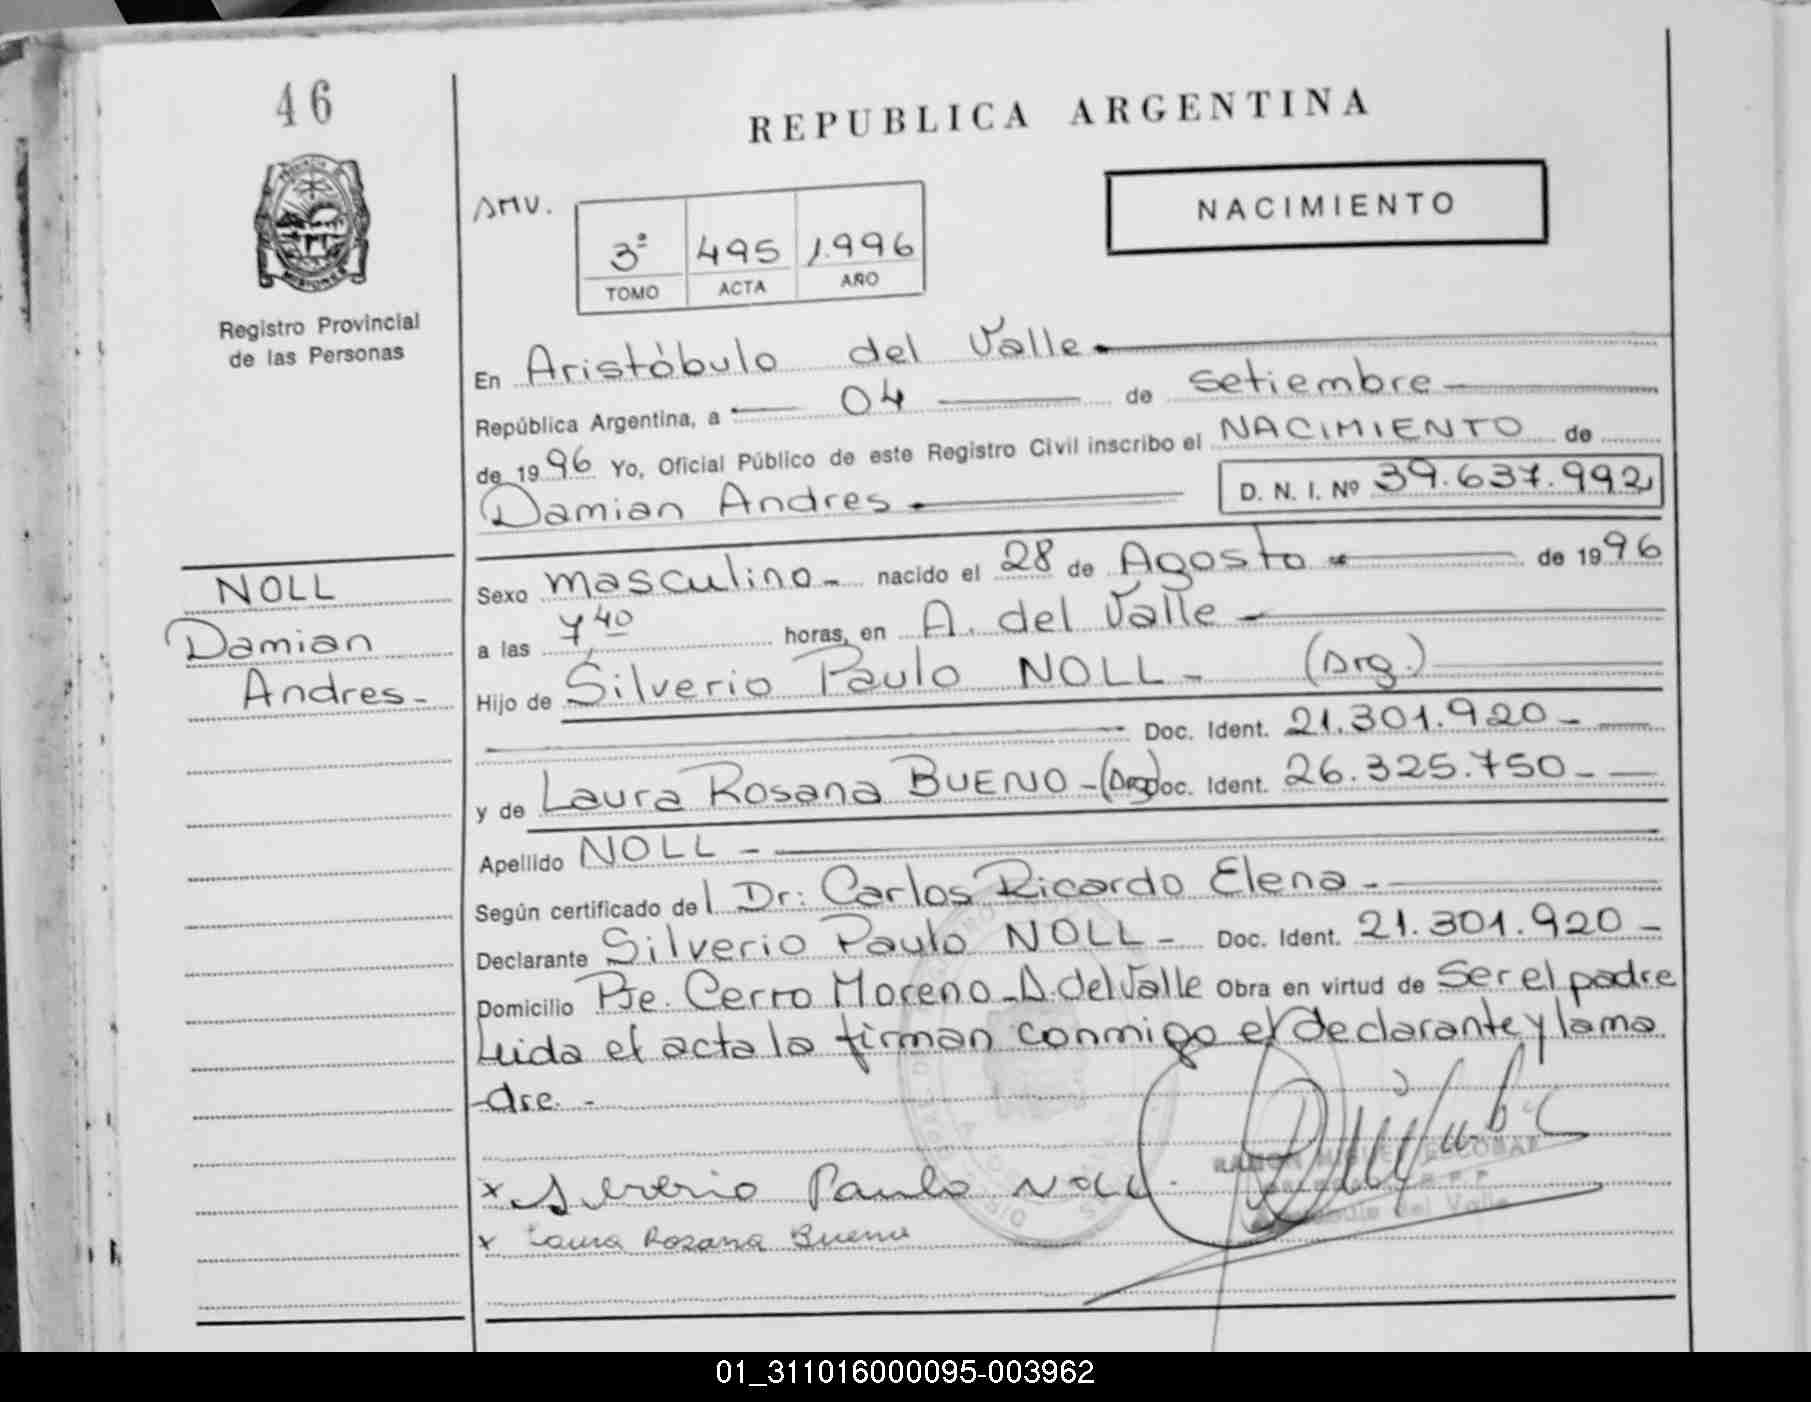 46
REPUBLICA ARGENTINA
NACIMIENTO
AMV.
3º 495 1.996
TOMO ACTA AÑO
PROVINCIA
MISIONES
Registro Provincial
de las Personas
En Aristóbulo del Valle
República Argentina, a 04 de setiembre
de 1996 Yo, Oficial Público de este Registro Civil inscribo el NACIMIENTO de
Damian Andres D. N. I. Nº 39.637.992
NOLL
Damian
Andres-
Sexo masculino- nacido el 28 de Agosto de 1996
a las 7 40 horas, en A. del Valle -
Hijo de Silverio Paulo NOLL - (Arg.)
Doc. Ident. 21.301.920-
y de Laura Rosana BUENO-(Arg) Doc. Ident. 26.325.750-
Apellido NOLL -
Según certificado del Dr: Carlos Ricardo Elena-
Declarante Silverio Paulo NOLL- Doc. Ident. 21.301.920-
Domicilio Pje. Cerro Moreno-A.del Valle Obra en virtud de Ser el padre
Leida el acta la firman conmigo el declarante y la ma
dre.-
x Silverio Paulo NOLL.
RAMON MIGUEL ESCOBAR
del Valle
x Laura Rosana Bueno
01_311016000095-003962